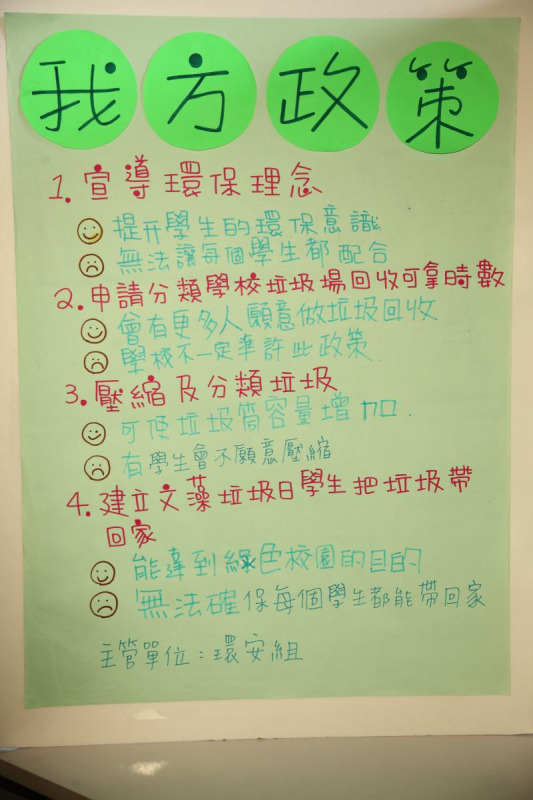 我方政策
1. 宣導環保理念
提升學生的環保意識
無法讓每個學生都配合
2. 申請分類學校垃圾場回收可拿時數
會有更多人願意做垃圾回收
學校不一定準許此政策
3. 壓縮及分類垃圾
可使垃圾筒容量增加.
有學生會不願意壓縮
4. 建立文藻垃圾日學生把垃圾帶
回家
能達到綠色校園的目的
無法確保每個學生都能帶回家
主管單位:環安組